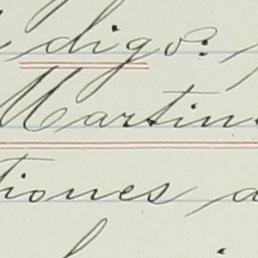 digo:
Martin
tiones a